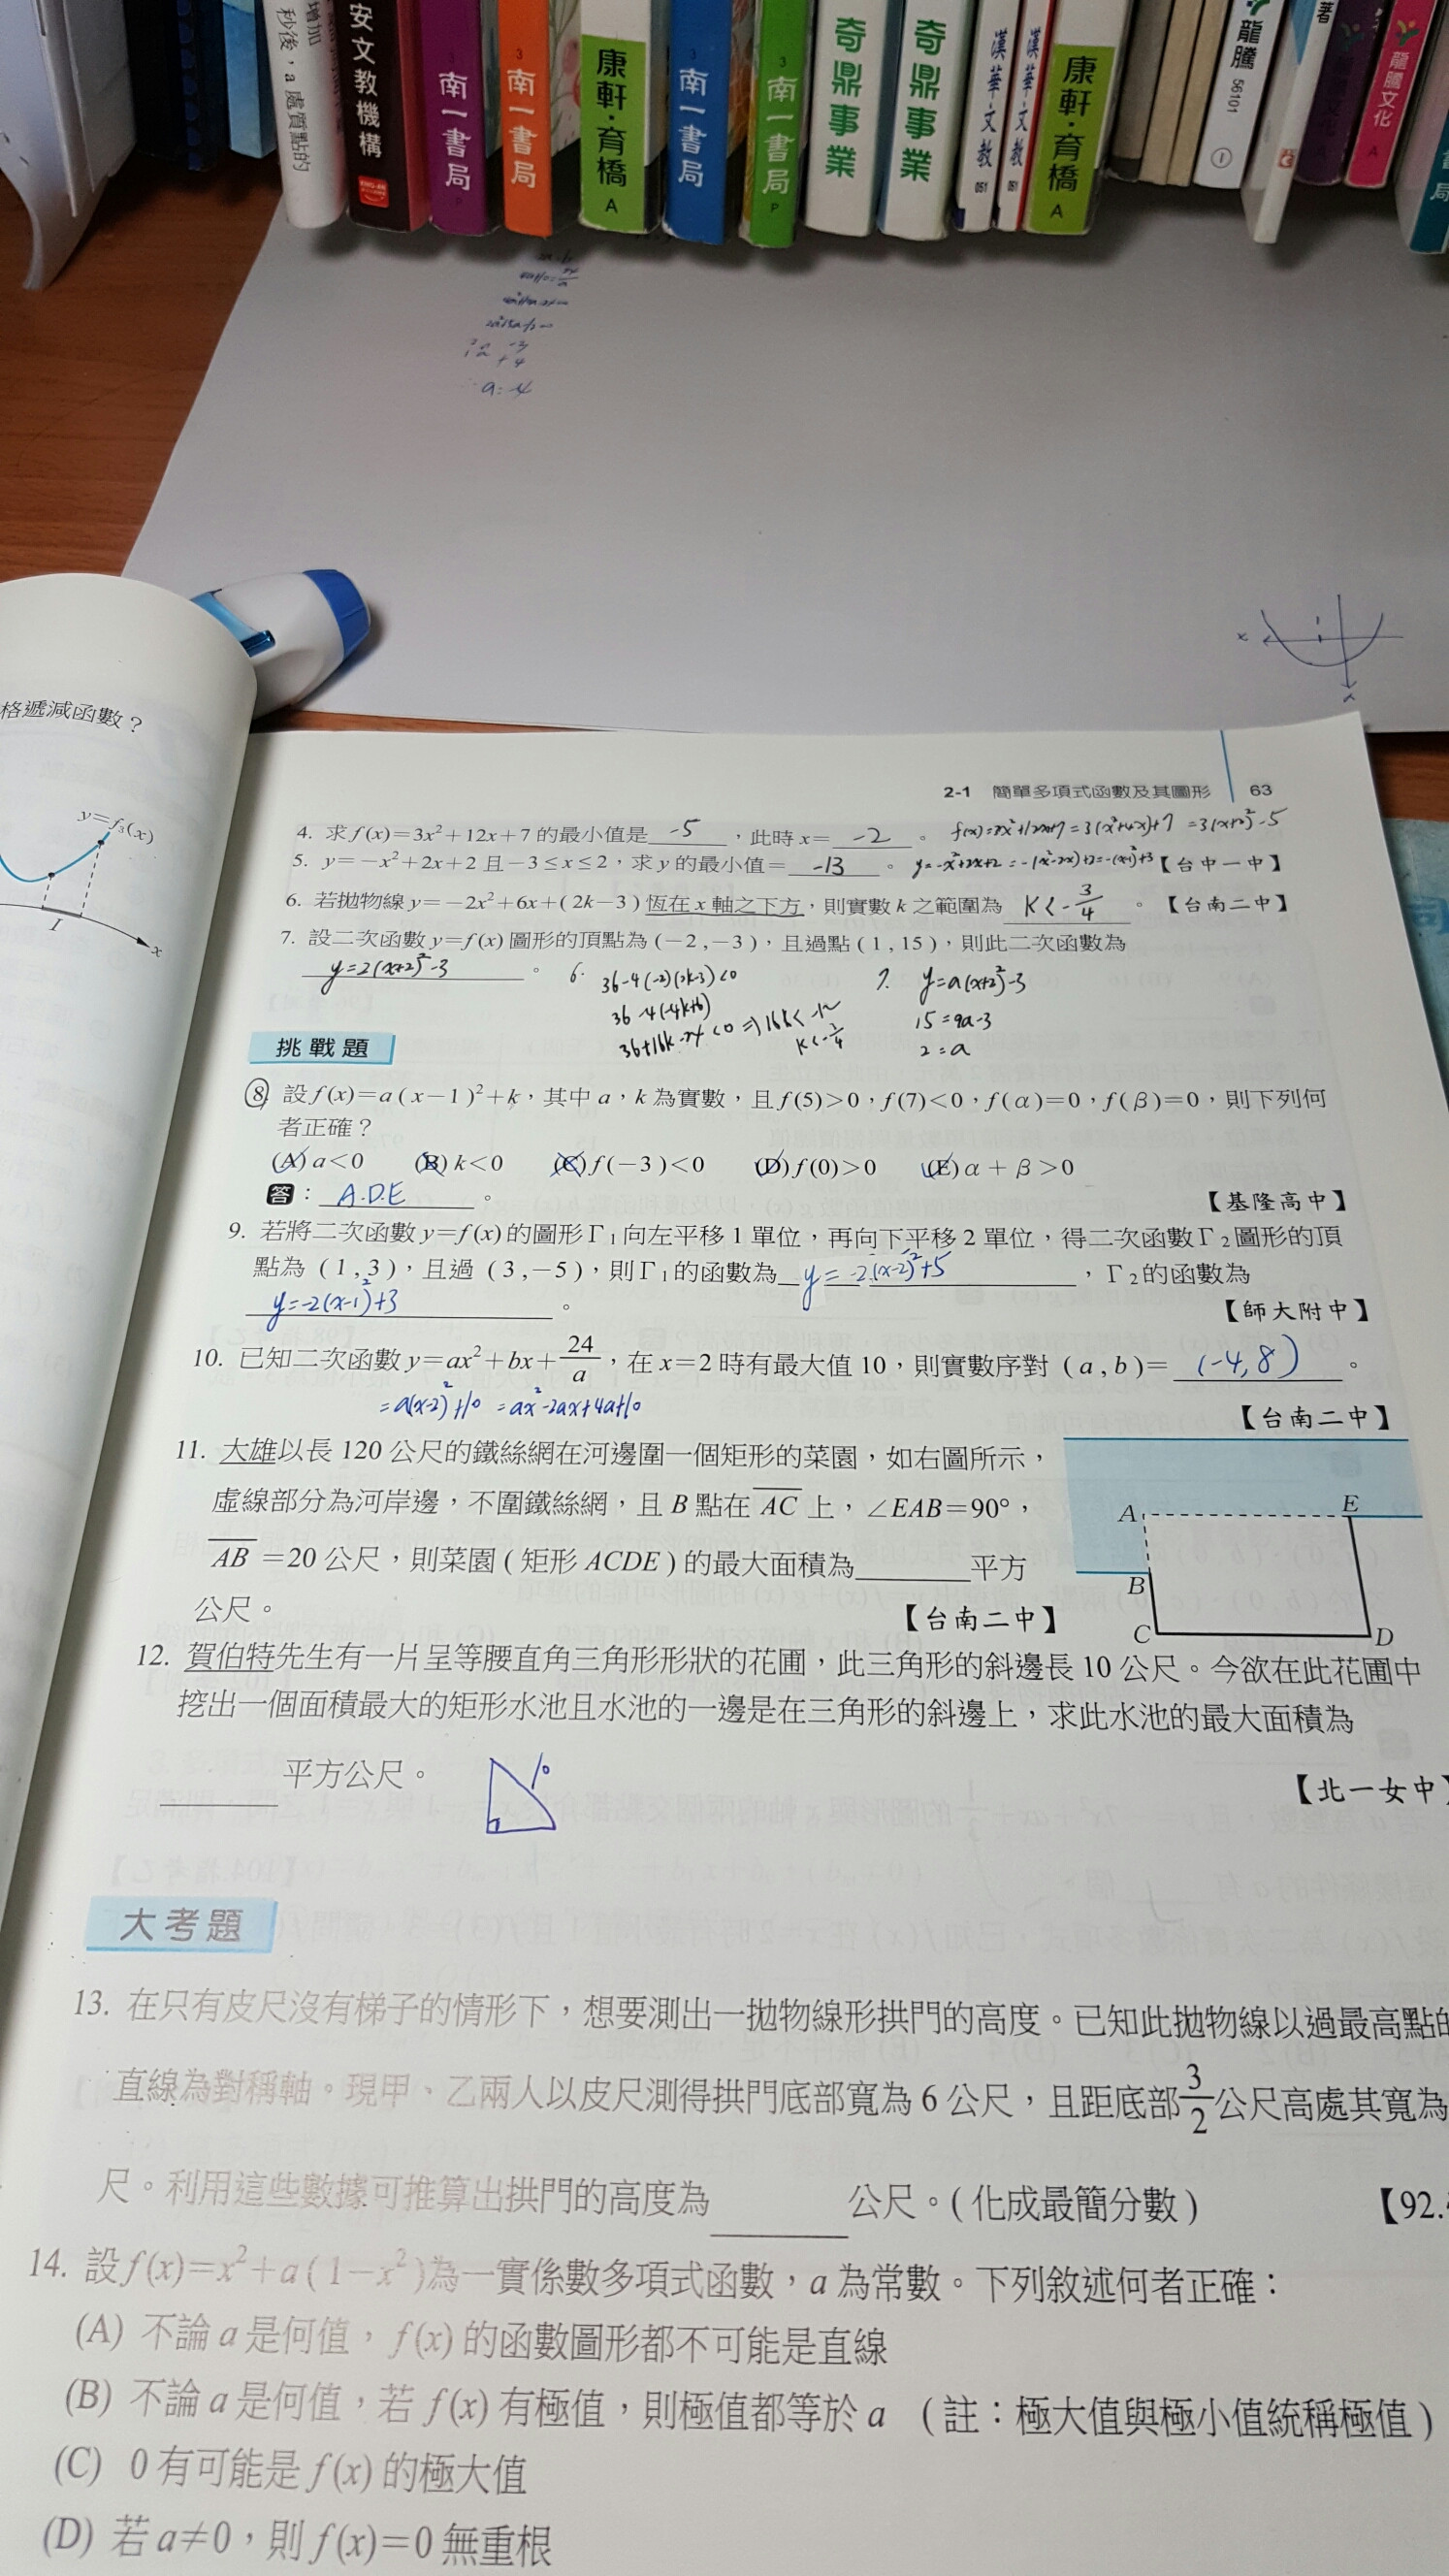 增加
秒後，a 處質點的
安文教機構
3 南一書局 P
3 南一書局
康軒·育橋 A
3 南一書局
3 南一書局 P
奇鼎事業
奇鼎事業
漢華文教 051
漢華文教 051
康軒·育橋 A
龍騰 56101 ①
著
龍騰文化 A
書局
a=-4
x
格遞減函數？
y=f₃(x)
I
x
2-1 簡單多項式函數及其圖形 63
4. 求 f(x)=3x²+12x+7 的最小值是 -5 ，此時 x= -2 。 f(x)=3x²+12x+7=3(x²+4x)+7 =3(x+2)²-5
5. y=-x²+2x+2 且 -3≤x≤2，求 y 的最小值= -13 。 y=-x²+2x+2=-(x²-2x)+2=-(x-1)²+3 【台中一中】
6. 若拋物線 y=-2x²+6x+(2k-3) 恆在 x 軸之下方，則實數 k 之範圍為 K<-3/4 。【台南二中】
7. 設二次函數 y=f(x) 圖形的頂點為 (-2,-3)，且過點 (1,15)，則此二次函數為
y=2(x+2)²-3 。
6. 36-4(-2)(2k-3)<0
36-4(-4k+6)
36+16k-24<0 ⇒16k<-12
k<-3/4
7. y=a(x+2)²-3
15=9a-3
2=a
挑戰題
8. 設 f(x)=a(x-1)²+k，其中 a，k 為實數，且 f(5)>0，f(7)<0，f(α)=0，f(β)=0，則下列何
者正確？
(A) a<0 (B) k<0 (C) f(-3)<0 (D) f(0)>0 (E) α+β>0
答： A.D.E 。 【基隆高中】
9. 若將二次函數 y=f(x) 的圖形 Γ₁ 向左平移 1 單位，再向下平移 2 單位，得二次函數 Γ₂ 圖形的頂
點為 (1,3)，且過 (3,-5)，則 Γ₁ 的函數為 y=-2(x-2)²+5 ，Γ₂ 的函數為
y=-2(x-1)²+3 。 【師大附中】
10. 已知二次函數 y=ax²+bx+24/a，在 x=2 時有最大值 10，則實數序對 (a,b)= (-4,8) 。
=a(x-2)²+10 =ax²-2ax+4a+10
【台南二中】
11. 大雄以長 120 公尺的鐵絲網在河邊圍一個矩形的菜園，如右圖所示，
虛線部分為河岸邊，不圍鐵絲網，且 B 點在 AC 上，∠EAB=90°，
AB=20 公尺，則菜園(矩形 ACDE)的最大面積為 平方
公尺。 【台南二中】
A E
B
C D
12. 賀伯特先生有一片呈等腰直角三角形形狀的花圃，此三角形的斜邊長 10 公尺。今欲在此花圃中
挖出一個面積最大的矩形水池且水池的一邊是在三角形的斜邊上，求此水池的最大面積為
平方公尺。 10 【北一女中】
大考題
13. 在只有皮尺沒有梯子的情形下，想要測出一拋物線形拱門的高度。已知此拋物線以過最高點的
直線為對稱軸。現甲、乙兩人以皮尺測得拱門底部寬為 6 公尺，且距底部 3/2 公尺高處其寬為
尺。利用這些數據可推算出拱門的高度為 公尺。(化成最簡分數) 【92.
14. 設 f(x)=x²+a(1-x²) 為一實係數多項式函數，a 為常數。下列敘述何者正確：
(A) 不論 a 是何值，f(x) 的函數圖形都不可能是直線
(B) 不論 a 是何值，若 f(x) 有極值，則極值都等於 a (註：極大值與極小值統稱極值)
(C) 0 有可能是 f(x) 的極大值
(D) 若 a≠0，則 f(x)=0 無重根